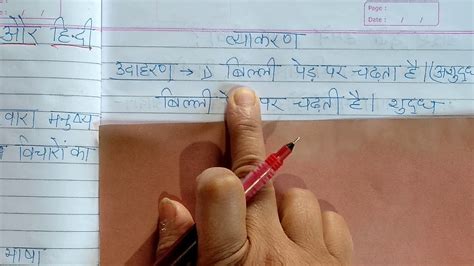 Page :
Date : / /
और हिन्दी व्याकरण
उदाहरण → 1) बिल्ली पेड़ पर चढ़ता है। (अशुद्ध
बिल्ली पर चढ़ती है। शुद्ध
वारा मनुष्य
विचारों का
भाषा